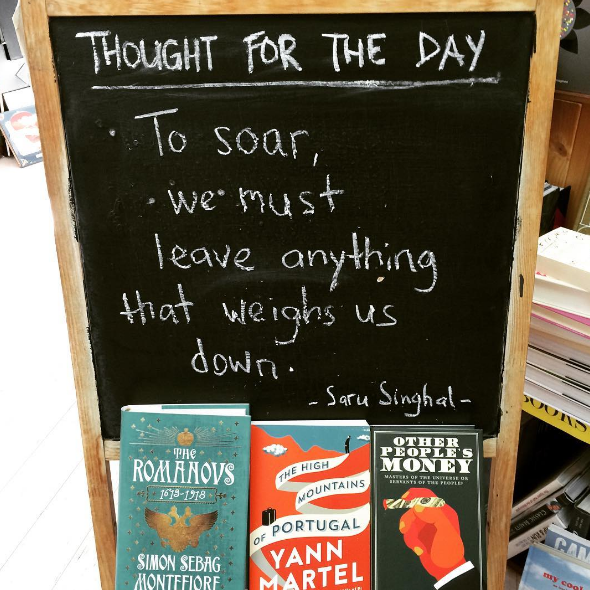 THOUGHT FOR THE DAY
To soar,
we must
leave anything
that weighs us
down.
- Saru Singhal -
THE
ROMANOVS
1613-1918
SIMON SEBAG
MONTEFIORE
THE HIGH
MOUNTAINS
OF PORTUGAL
YANN
MARTEL
OTHER
PEOPLE'S
MONEY
MASTERS OF THE UNIVERSE OR
SERVANTS OF THE PEOPLE?
BOOKS
my cool